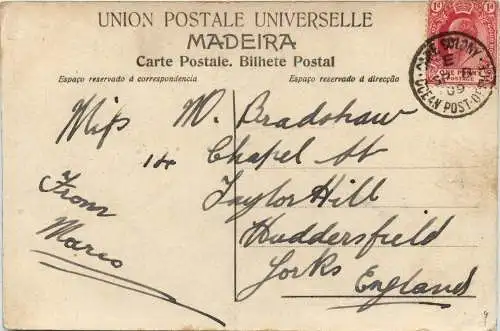 UNION POSTALE UNIVERSELLE
MADEIRA
Carte Postale. Bilhete Postal
Espaço reservado á correspondencia
Espaço reservado á direcção
1d 1d
ONE PENNY
POSTAGE
CAPE COLONY
E
09
OCEAN POST
Miss M. Bradshaw
14 Chapel St
Taylor Hill
Huddersfield
Yorks England
From